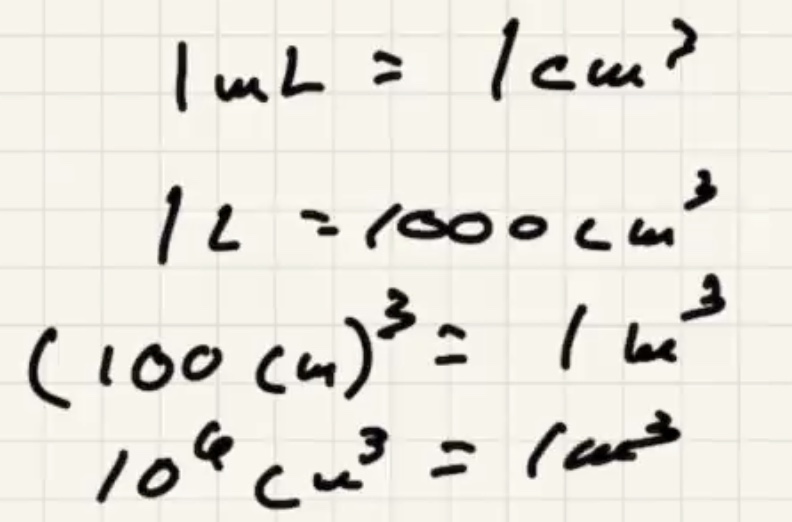 1 mL = 1 cm³
1 L = 1000 cm³
(100 cm)³ = 1 m³
10⁶ cm³ = 1 m³